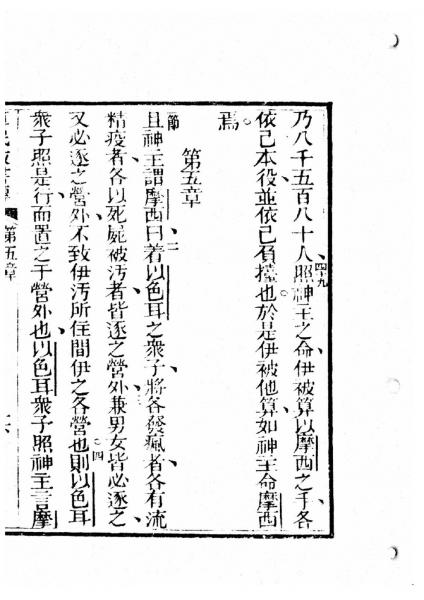 乃八千五百八十人四十九照神主之命伊被算以摩西之手各
依己本役並依己負擡也於是伊被他算如神主命摩西
焉
第五章
節一且神主謂摩西曰二着以色耳之衆子將各發瘋者各有流
精疫者各以死屍被汚者皆逐之營外三兼男女皆必逐之
又必逐之營外不致伊汚所住間伊之各營也四則以色耳
衆子照是行而置之于營外也以色耳衆子照神主言摩
第五章